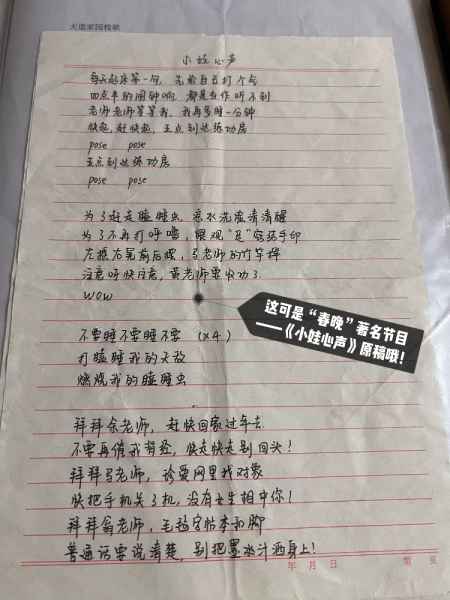 大道家园稿纸
小娃心声
每天起床第一句,先给自己打个气
四点半的闹钟响,都是当作听不到
老师老师等等我,我再多睡一分钟
快起,赶快起,五点到达练功房
pose pose
五点到达练功房
pose pose
为了赶走瞌睡虫,凉水洗脸清清醒
为了不再打呼噜,
左摇右晃前后摆,
注意呀快注意,
wow
不要睡不要睡不要 (x4)
打瞌睡我的天敌
燃烧我的瞌睡虫
拜拜余老师,赶快回家过年去
不要再催我背经,快走快走别回头!
拜拜马老师,珍爱网里找对象
快把手机关了机,没有女生相中你!
拜拜翁老师,毛毡字帖本和脚
普通话要说清楚,别把墨水汁洒身上!
年 月 日
这可是“春晚”著名节目
——《小娃心声》原稿哦!